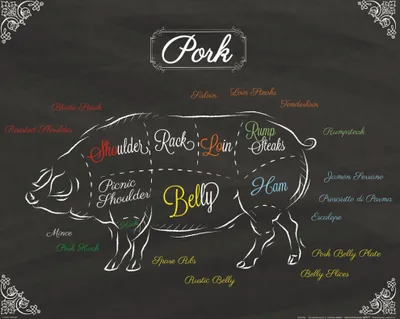 Pork
Sirloin
Loin Steaks
Tenderloin
Blade Steak
Roasted Shoulder
Shoulder
Rack
Loin
Rump
Steaks
Rumpsteak
Picnic
Shoulder
Belly
Ham
Jamon Serrano
Prosciutto di Parma
Escalope
Mince
Pork Hock
Spare Ribs
Rustic Belly
Pork Belly Plate
Belly Slices